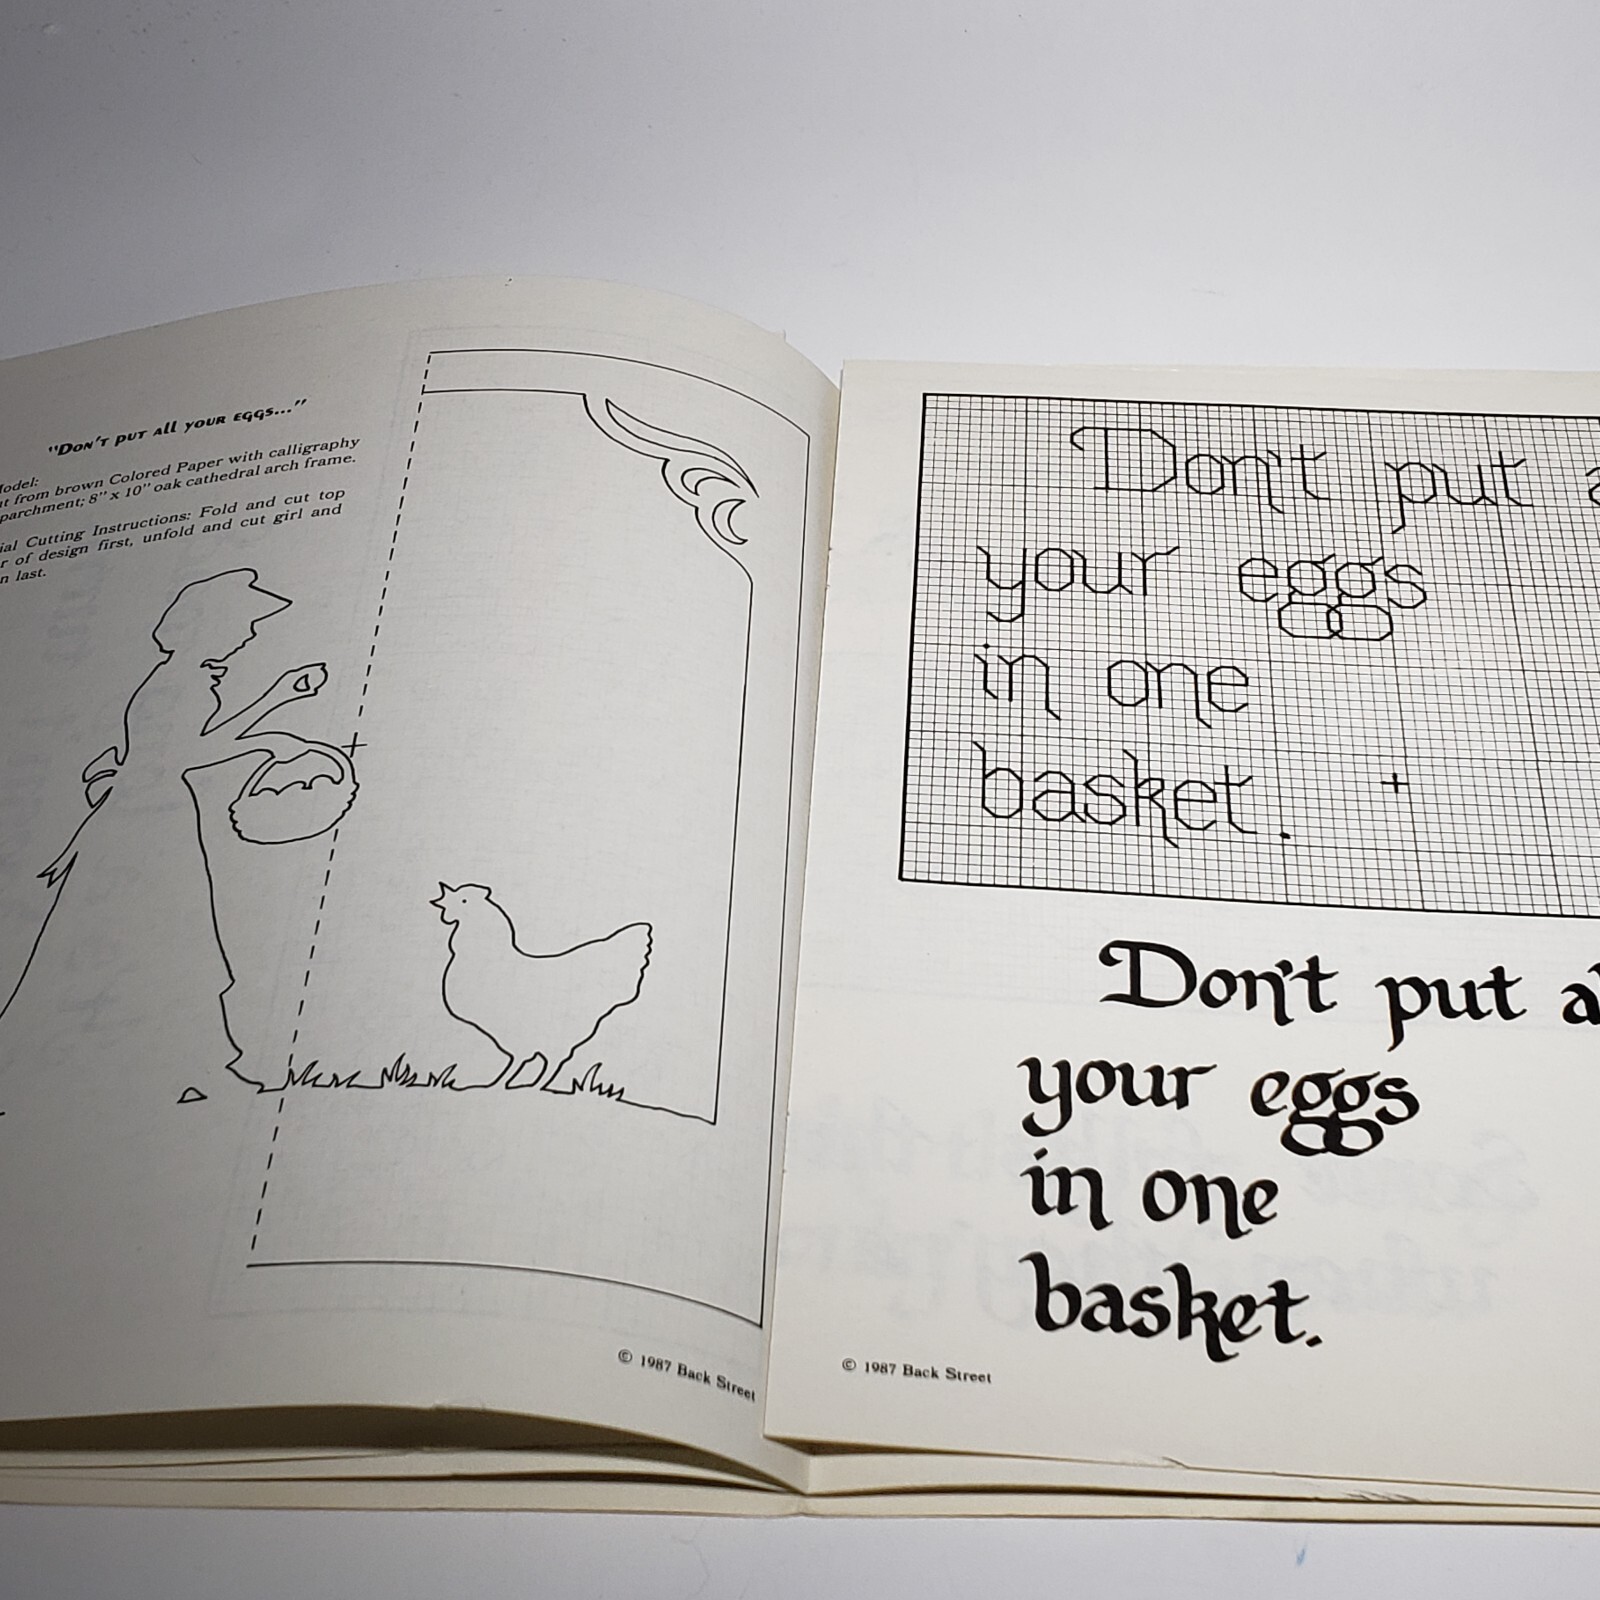 "Don't put all your eggs..."
from brown Colored Paper with calligraphy
parchment; 8" x 10" oak cathedral arch frame.
Cutting Instructions: Fold and cut top
of design first, unfold and cut girl and
last.
© 1987 Back Street
Don't put
your eggs
in one
basket.
Don't put
your eggs
in one
basket.
© 1987 Back Street